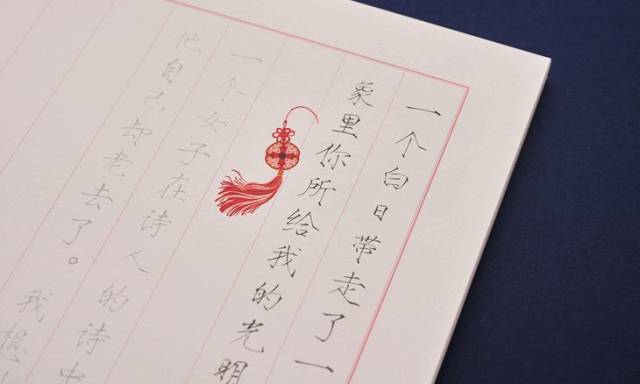 一个白日带走了一
象里你所给我的光明
一个女子在诗人的诗中
他自己却老去了。我想